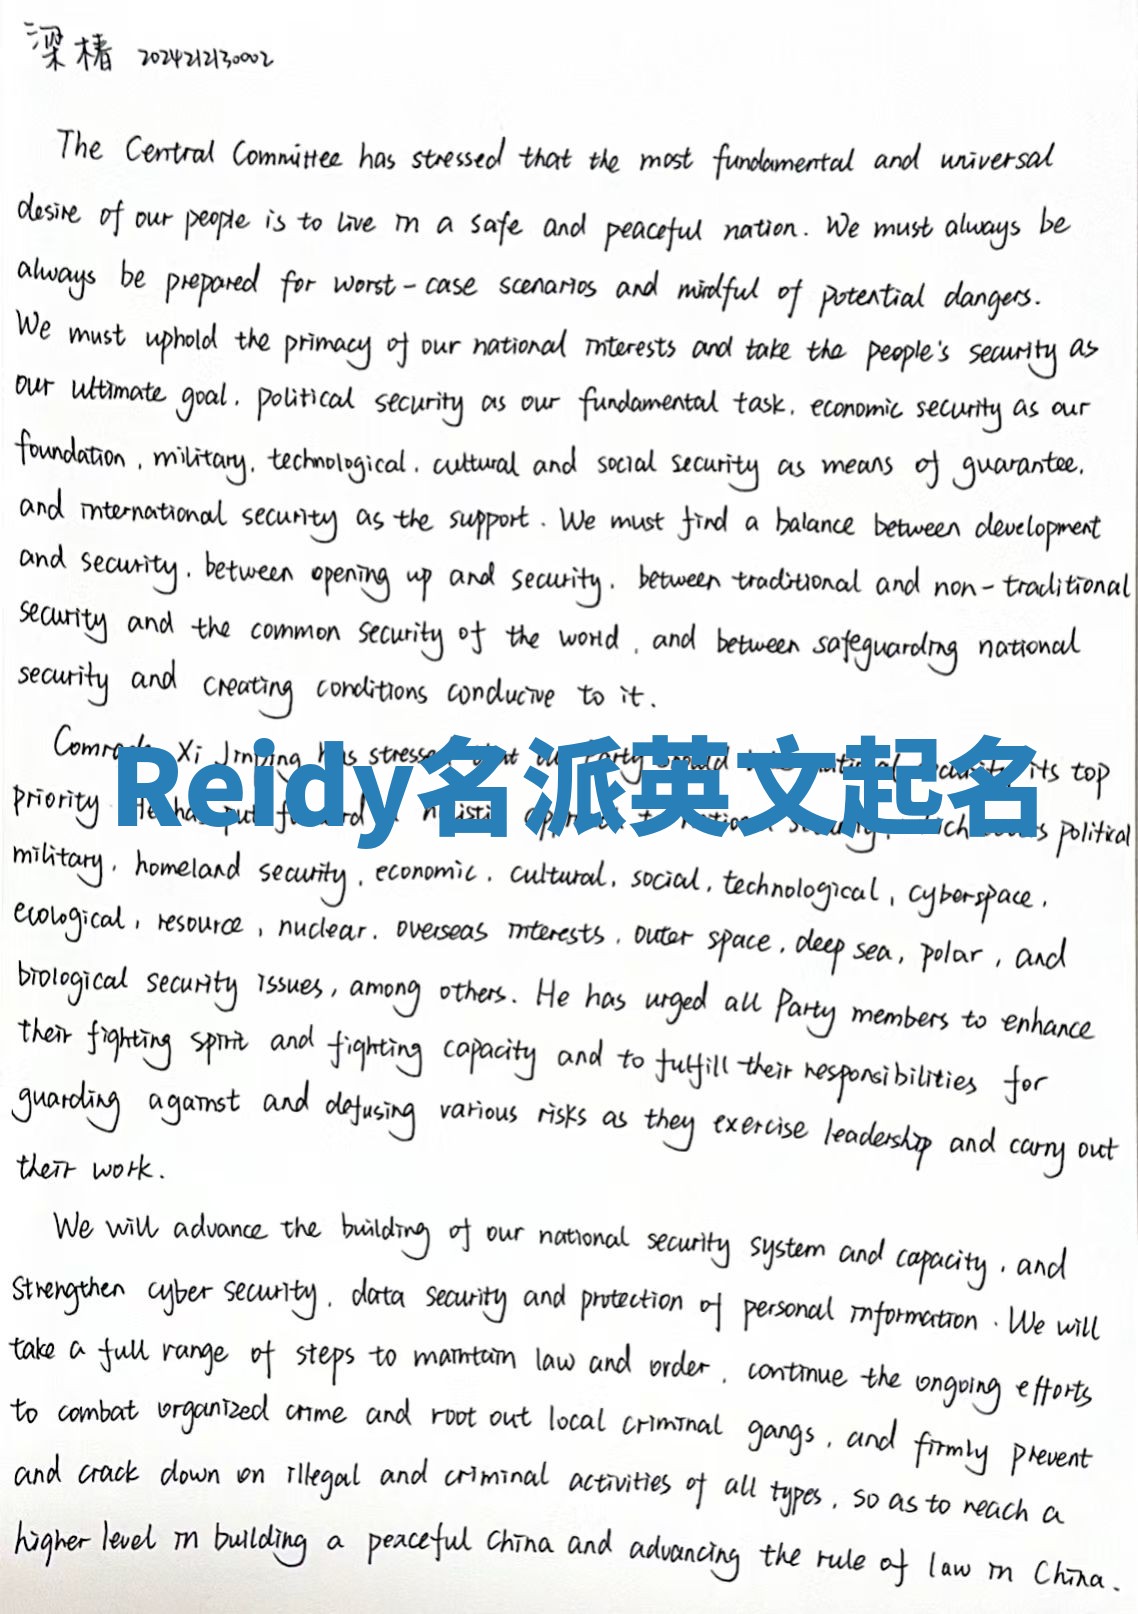 梁椿 2024212130002
The Central Committee has stressed that the most fundamental and universal
desire of our people is to live in a safe and peaceful nation. We must always be
always be prepared for worst-case scenarios and mindful of potential dangers.
We must uphold the primacy of our national interests and take the people's security as
our ultimate goal, political security as our fundamental task, economic security as our
foundation, military, technological, cultural and social security as means of guarantee,
and international security as the support. We must find a balance between development
and security, between opening up and security, between traditional and non-traditional
security and the common security of the world, and between safeguarding national
security and creating conditions conducive to it.
Xi Jinping its top
Reidy名派英文起名
priority political
military, homeland security, economic, cultural, social, technological, cyberspace,
ecological, resource, nuclear, overseas interests, outer space, deep sea, polar, and
biological security issues, among others. He has urged all Party members to enhance
their fighting spirit and fighting capacity and to fulfill their responsibilities for
guarding against and defusing various risks as they exercise leadership and carry out
their work.
We will advance the building of our national security system and capacity, and
strengthen cyber security, data security and protection of personal information. We will
take a full range of steps to maintain law and order, continue the ongoing efforts
to combat organized crime and root out local criminal gangs, and firmly prevent
and crack down on illegal and criminal activities of all types, so as to reach a
higher level in building a peaceful China and advancing the rule of law in China.